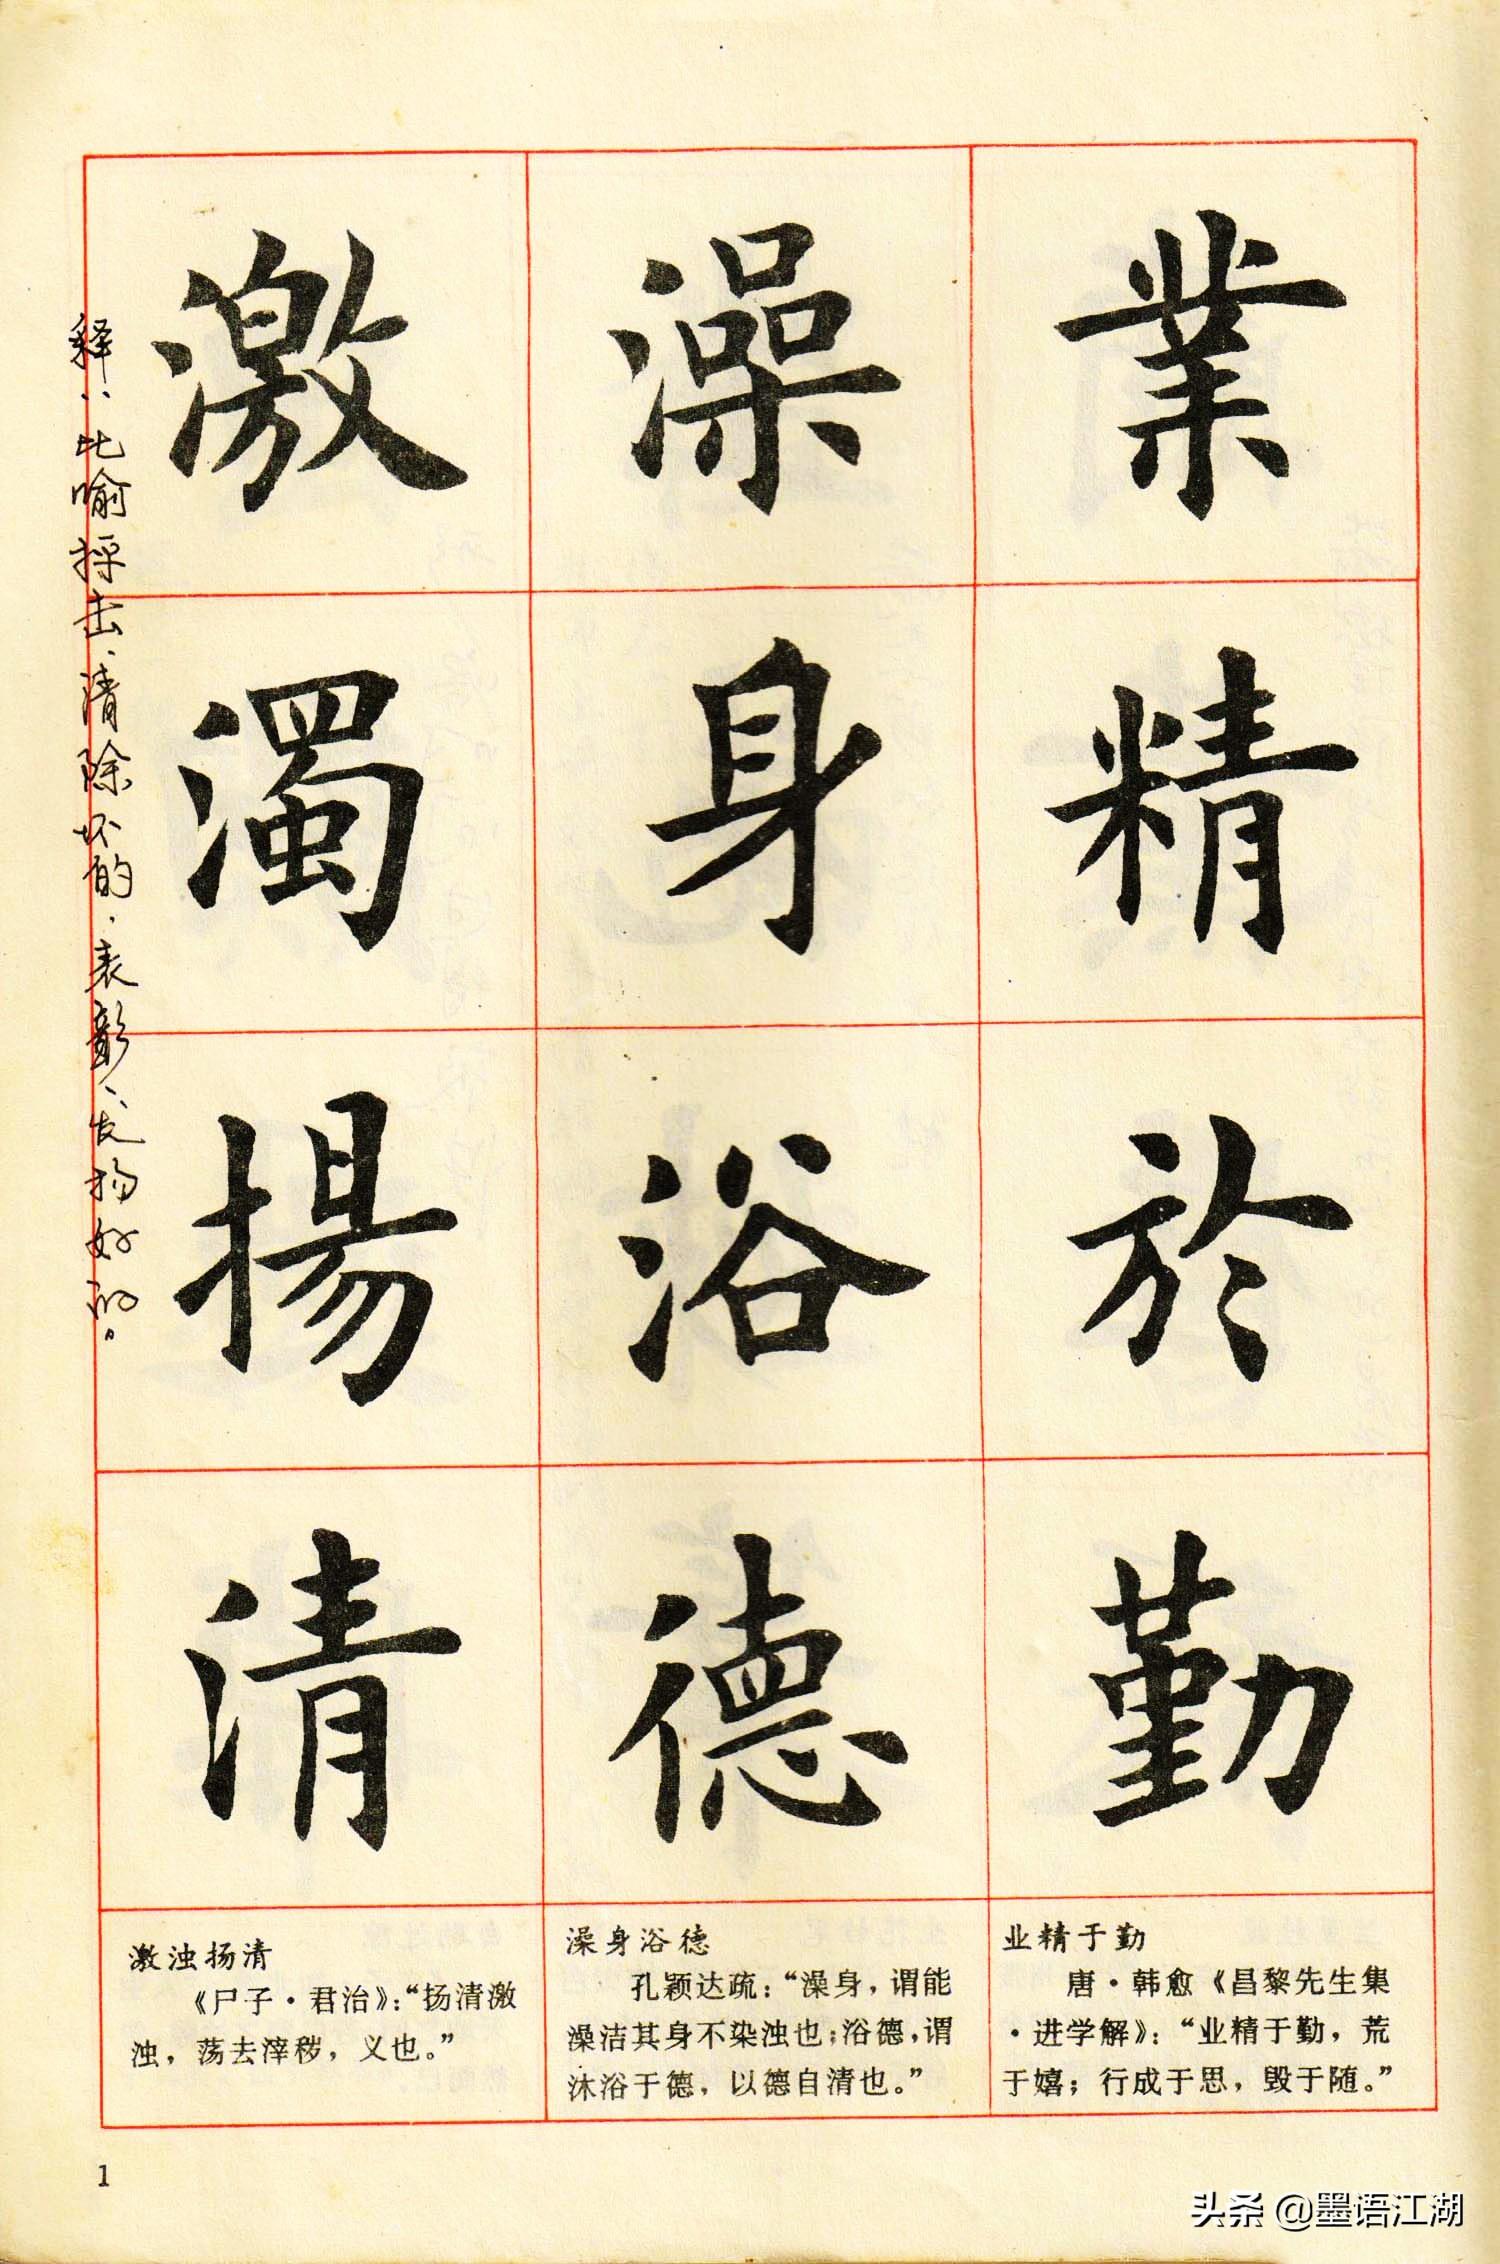 業精於勤
澡身浴德
激濁揚清
释：比喻抨击、清除坏的，表彰、发扬好的。
业精于勤
唐·韩愈《昌黎先生集
·进学解》：“业精于勤，荒
于嬉；行成于思，毁于随。”
澡身浴德
孔颖达疏：“澡身，谓能
澡洁其身不染浊也；浴德，谓
沐浴于德，以德自清也。”
激浊扬清
《尸子·君治》：“扬清激
浊，荡去滓秽，义也。”
1
头条 @墨语江湖